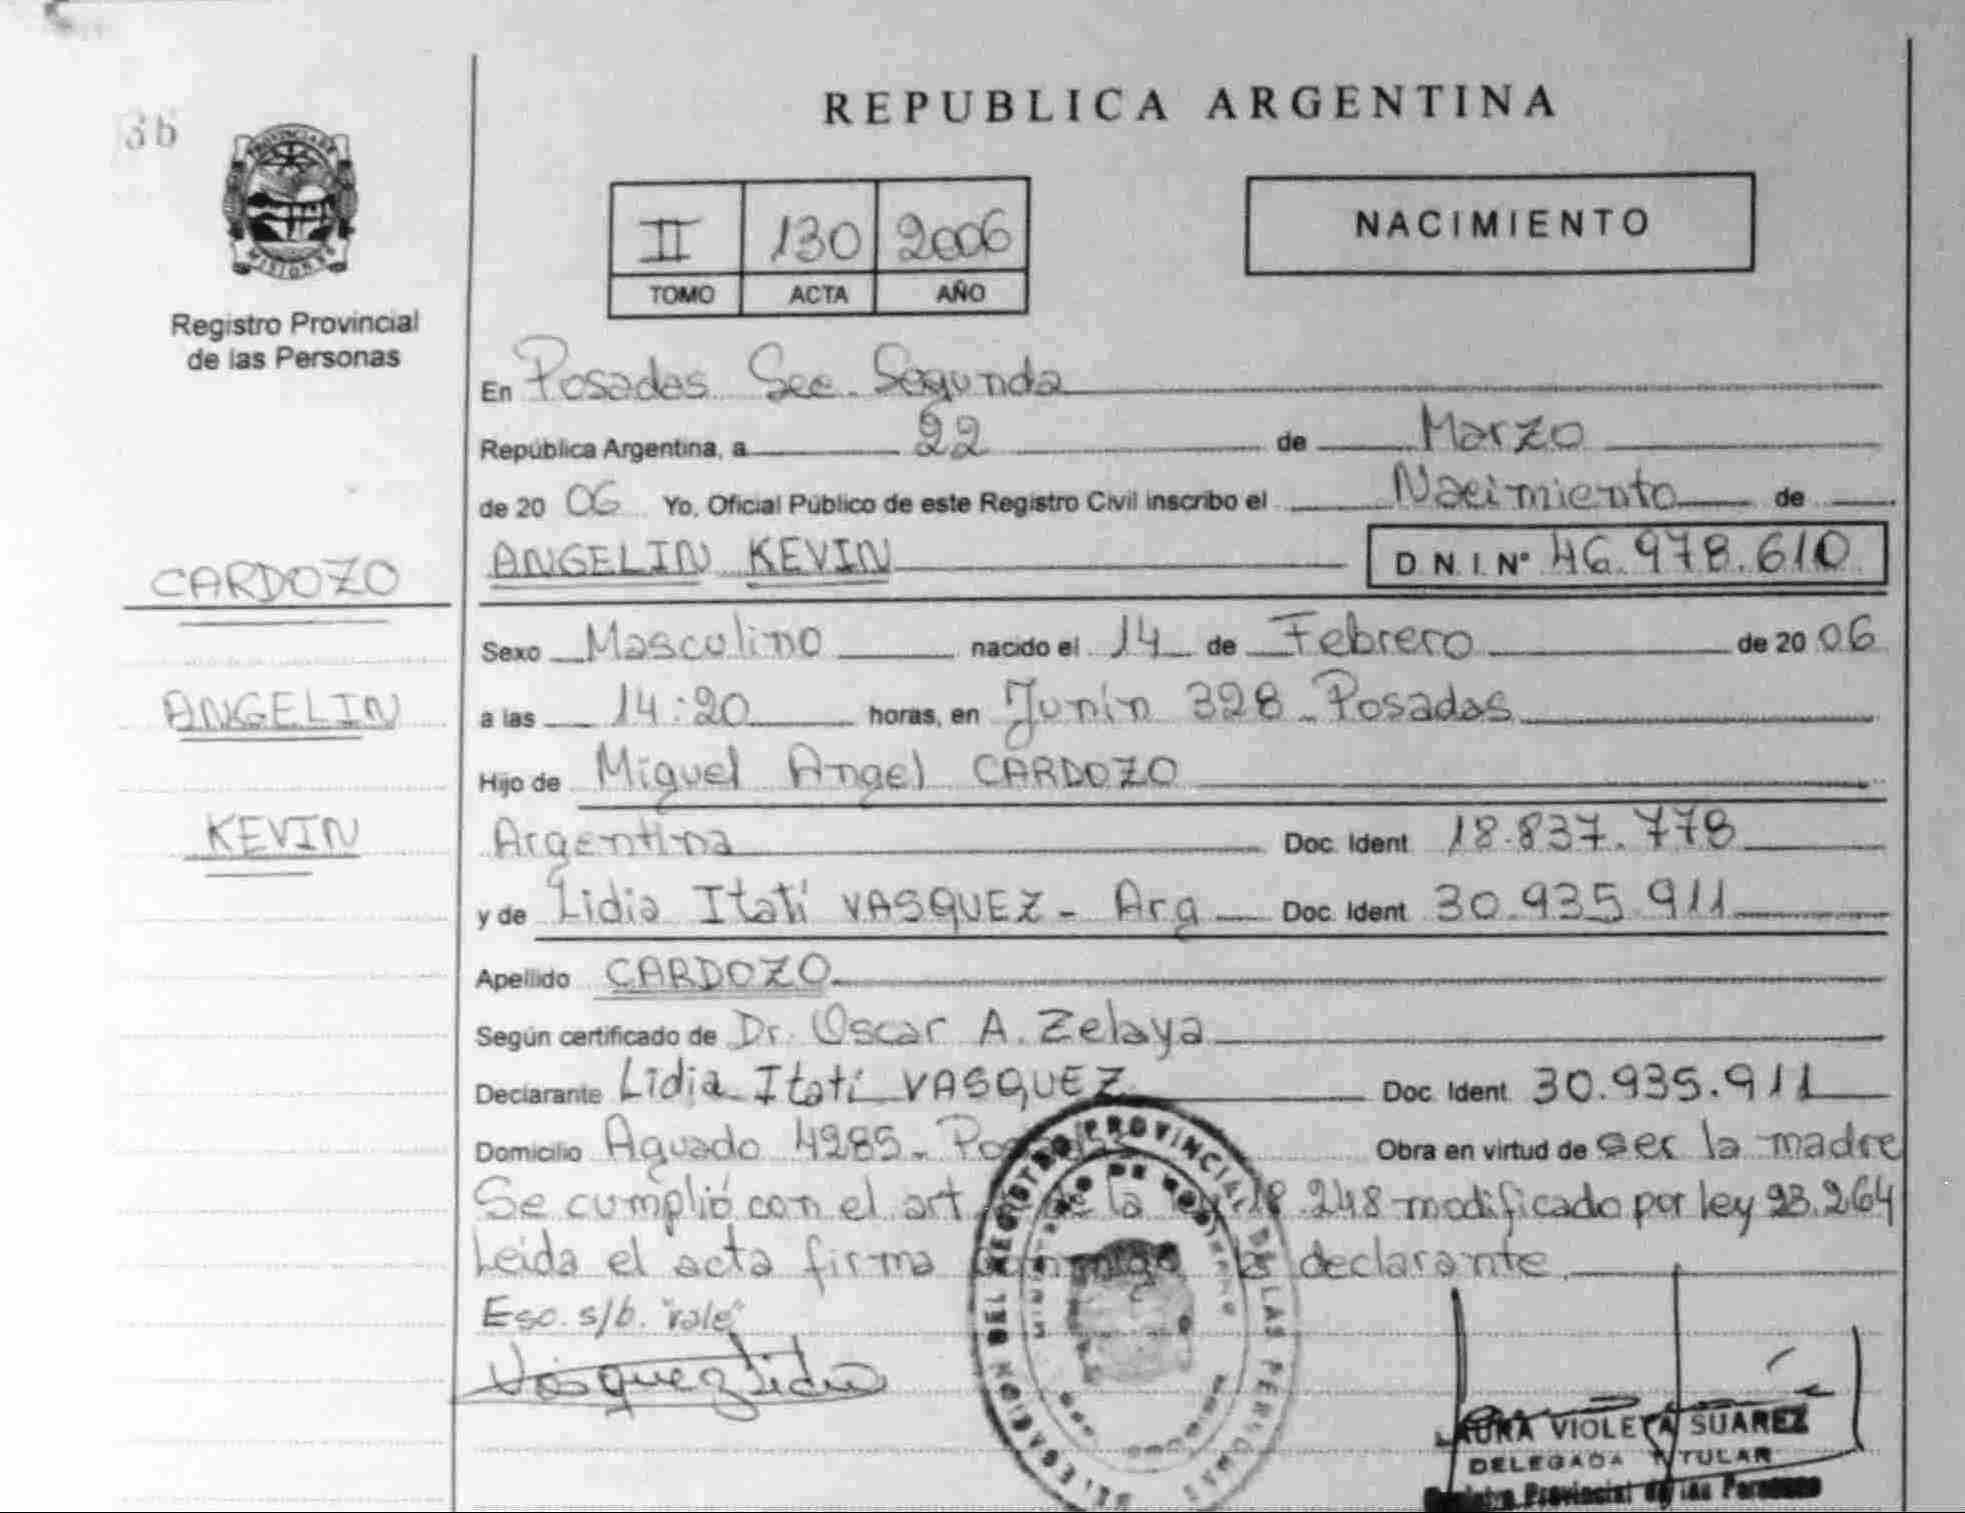 36
REPUBLICA ARGENTINA
PROVINCIA DE
MISIONES
Registro Provincial
de las Personas
II 130 2006
TOMO ACTA AÑO
NACIMIENTO
En Posadas Sec. Segunda
República Argentina, a 22 de Marzo
de 20 06 Yo, Oficial Público de este Registro Civil inscribo el Nacimiento de
ANGELIN KEVIN D N. I. Nº 46.978.610
CARDOZO
Sexo Masculino nacido el 14 de Febrero de 20 06
ANGELIN
a las 14:20 horas, en Junín 328 - Posadas
Hijo de Miguel Angel CARDOZO
KEVIN
Argentina Doc. Ident 18.837.778
y de Lidia Itatí VASQUEZ - Arg Doc. Ident 30.935.911
Apellido CARDOZO
Según certificado de Dr. Oscar A. Zelaya
Declarante Lidia Itatí VASQUEZ Doc. Ident. 30.935.911
Domicilio Aguado 4285 - Posadas Obra en virtud de ser la madre
Se cumplió con el art de la 18.248 modificado por ley 23.264
Leida el acta firma conmigo la declarante
Esc. s/b. "vale"
Vasquez Lidia
REGISTRO PROVINCIAL DE LAS PERSONAS
LAURA VIOLETA SUAREZ
DELEGADA TITULAR
Registro Provincial de las Personas